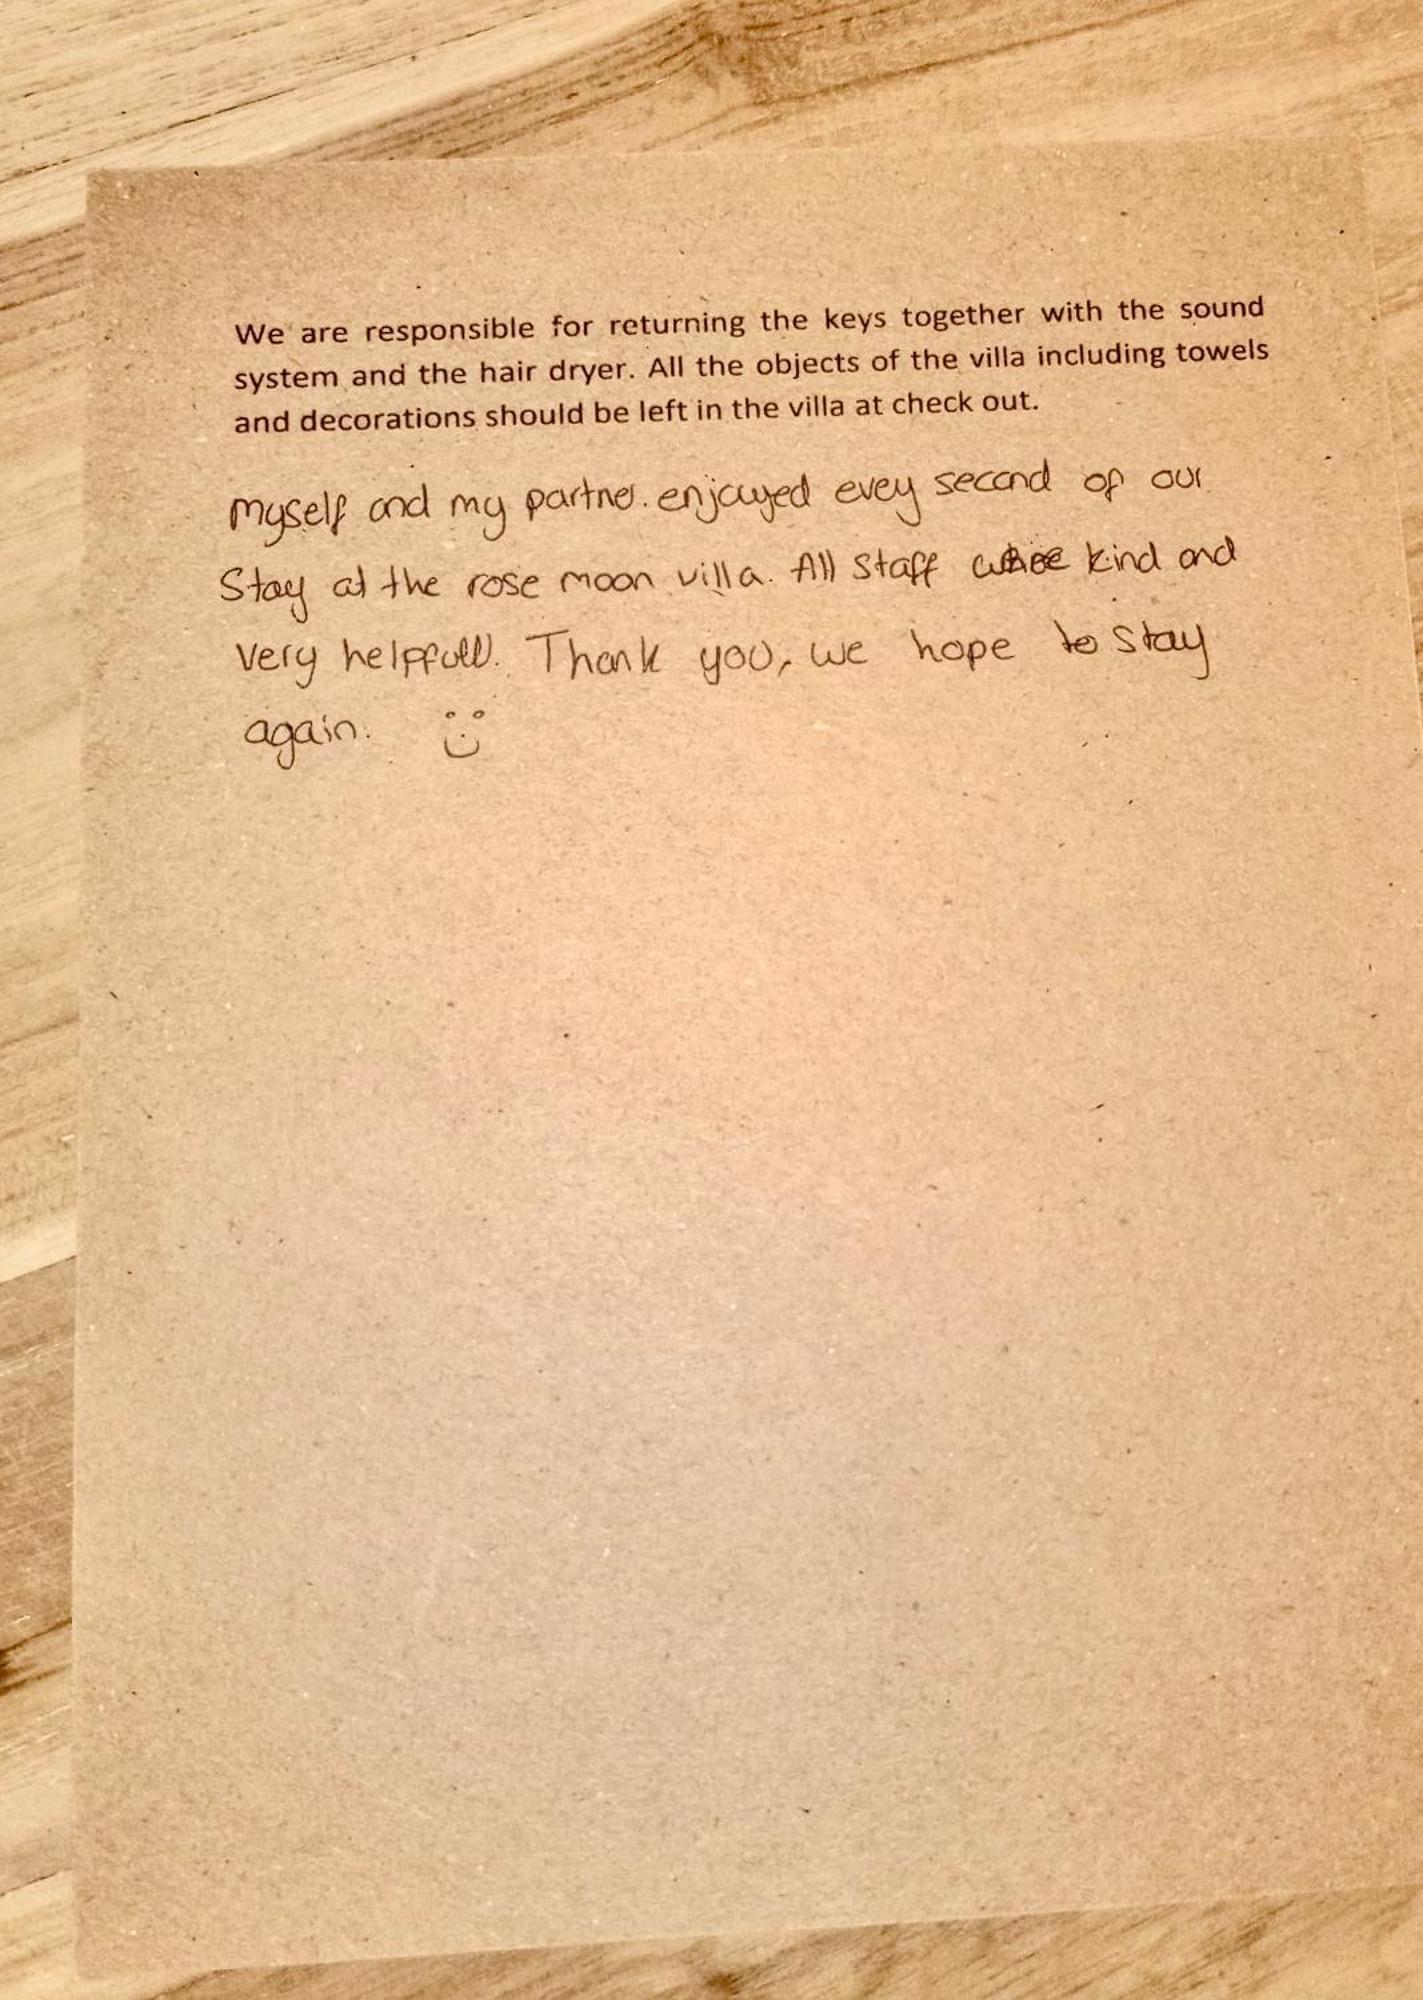 We are responsible for returning the keys together with the sound
system and the hair dryer. All the objects of the villa including towels
and decorations should be left in the villa at check out.
Myself and my partner enjoyed evey second of our
Stay at the rose moon villa. All staff kind and
very helpfull. Thank you, we hope to stay
again.